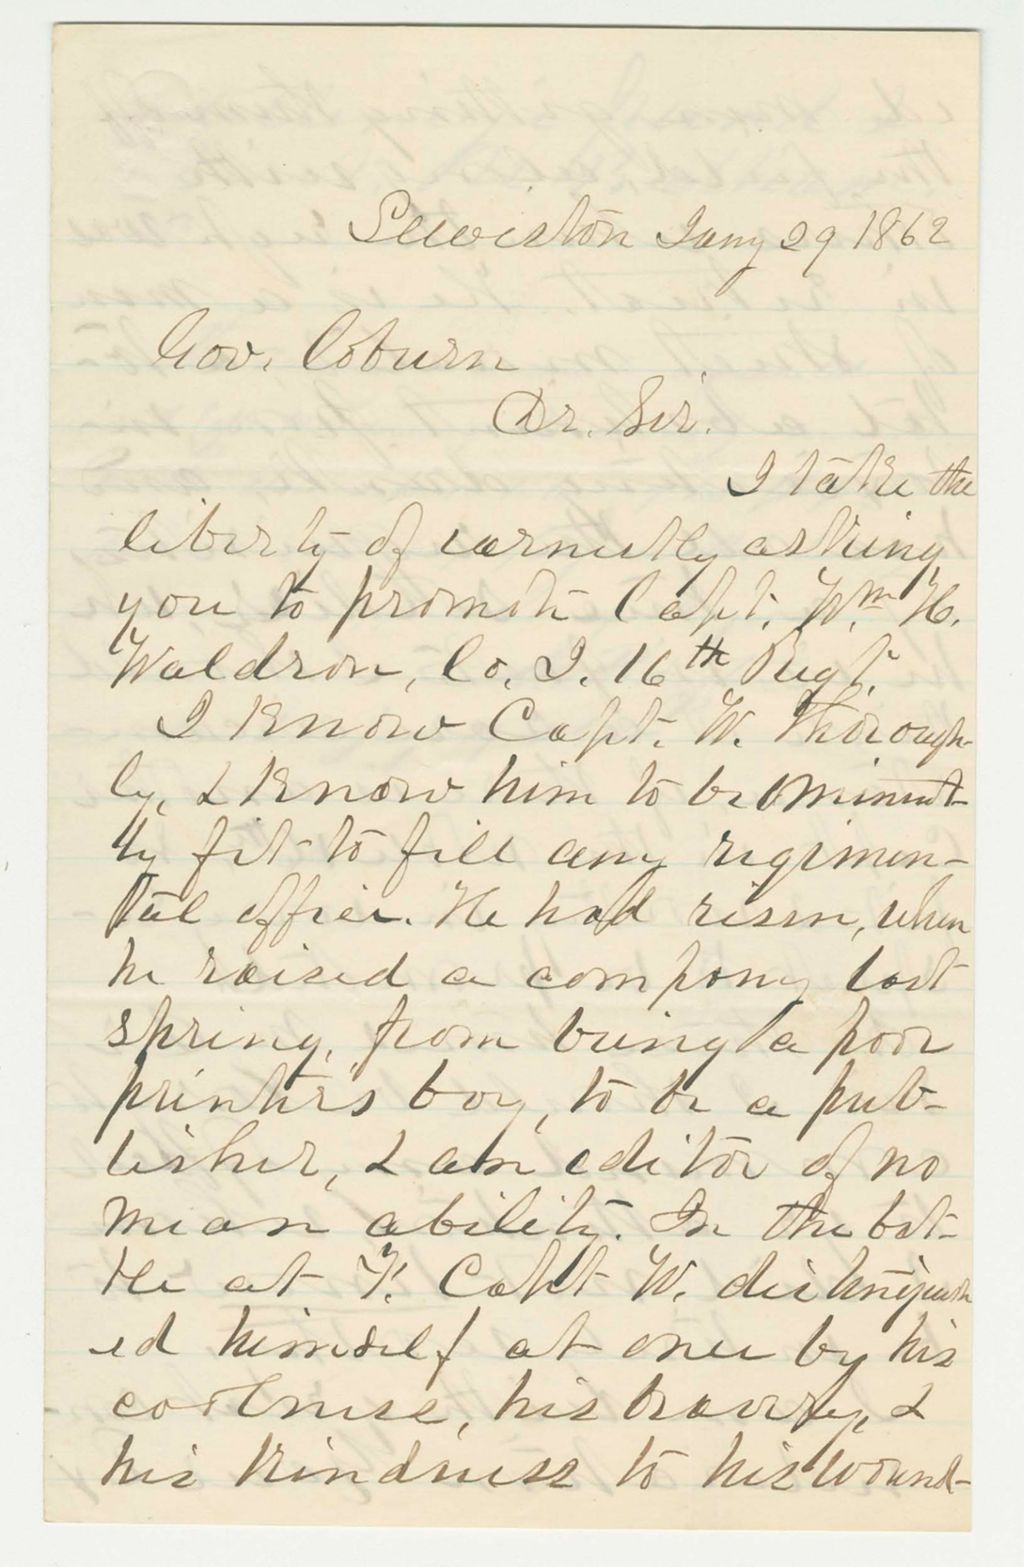 Lewiston Jany 29 1862
Gov. Coburn
Dr. Sir.
I take the
liberty of earnestly asking
you to promote Capt. Wm. H.
Waldron, Co. I. 16th Regt.
I know Capt. W. thorough-
ly, & know him to be eminent-
ly fit to fill any regimen-
tal office. He had risen, when
he raised a company last
spring, from being a poor
printer's boy, to be a pub-
lisher, & an editor of no
mean ability. In the bat-
tle at F. Capt W. distinguish
ed himself at once by his
coolness, his bravery, &
his kindness to his wound-